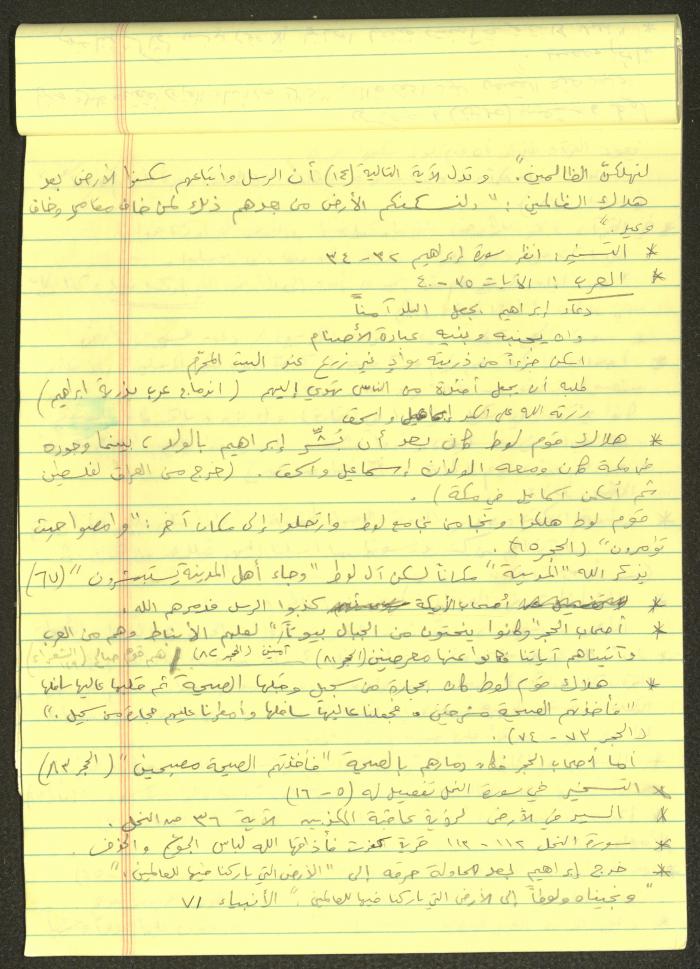 لنهلكنّ الظالمين". وتدل الآية التالية (١٤) أن الرسل وأتباعهم سكنوا الأرض بعد
هلاك الظالمين: "ولنسكننكم الأرض من بعدهم ذلك لمن خاف مقامي وخاف
وعيد."
* التسخير: انظر سورة إبراهيم ٣٢ - ٣٤
* العرب: الآيات ٣٥ - ٤٠
دعاء إبراهيم بجعل البلد آمناً
وأن يجنبه وبنيه عبادة الأصنام
اسكن جزءاً من ذريته بوادٍ غير زرع عند البيت المحرّم
طلبه أن يجعل أفئدة من الناس تهوي إليهم (اندماج عرب بذرية ابراهيم)
رزقه الله على الكبر إسماعيل واسحق
* هلاك قوم لوط كان بعد أن بُشِّر إبراهيم بالولد، بينما وجوده
في مكة كان ومعه الولدان إسماعيل واسحق. (خرج من العراق لفلسطين
ثم أسكن اسماعيل في مكة).
* قوم لوط هلكوا ونجا من نجا مع لوط وارتحلوا إلى مكان آخر: "وامضوا حيث
تؤمرون" (الحجر ٦٥).
يذكر الله "المدينة" مكاناً لسكن آل لوط "وجاء أهل المدينة يستبشرون" (٦٧)
* أصحاب الأيكة كذبوا الرسل فدمرهم الله.
* أصحاب الحجر "وكانوا ينحتون من الجبال بيوتاً" لعلهم الأنباط وهم من العرب
وآتيناهم آياتنا فكانوا عنها معرضين (الحجر ٨١) آمنين (الحجر ٨٢) هم قوم صالح (الشعراء)
* هلاك قوم لوط كان بحجارة من سجيل وقبلها الصيحة ثم قلبها عاليها سافلها
"فأخذتهم الصيحة مشرقين. فجعلنا عاليها سافلها وأمطرنا عليهم حجارة من سجيل."
(الحجر ٧٣ - ٧٤).
أما أصحاب الحجر فكان دمارهم بالصيحة "فأخذتهم الصيحة مصبحين" (الحجر ٨٣)
* التسخير في سورة النحل تفصيل له (٥ - ١٦)
* السير في الأرض لرؤية عاقبة المكذبين الآية ٣٦ من النحل.
* سورة النحل ١١٢ - ١١٣ قرية كفرت فأذاقها الله لباس الجوع والخوف.
* خرج إبراهيم بعد محاولة حرقه إلى "الأرض التي باركنا فيها للعالمين."
"ونجيناه ولوطاً إلى الأرض التي باركنا فيها للعالمين." الأنبياء ٧١